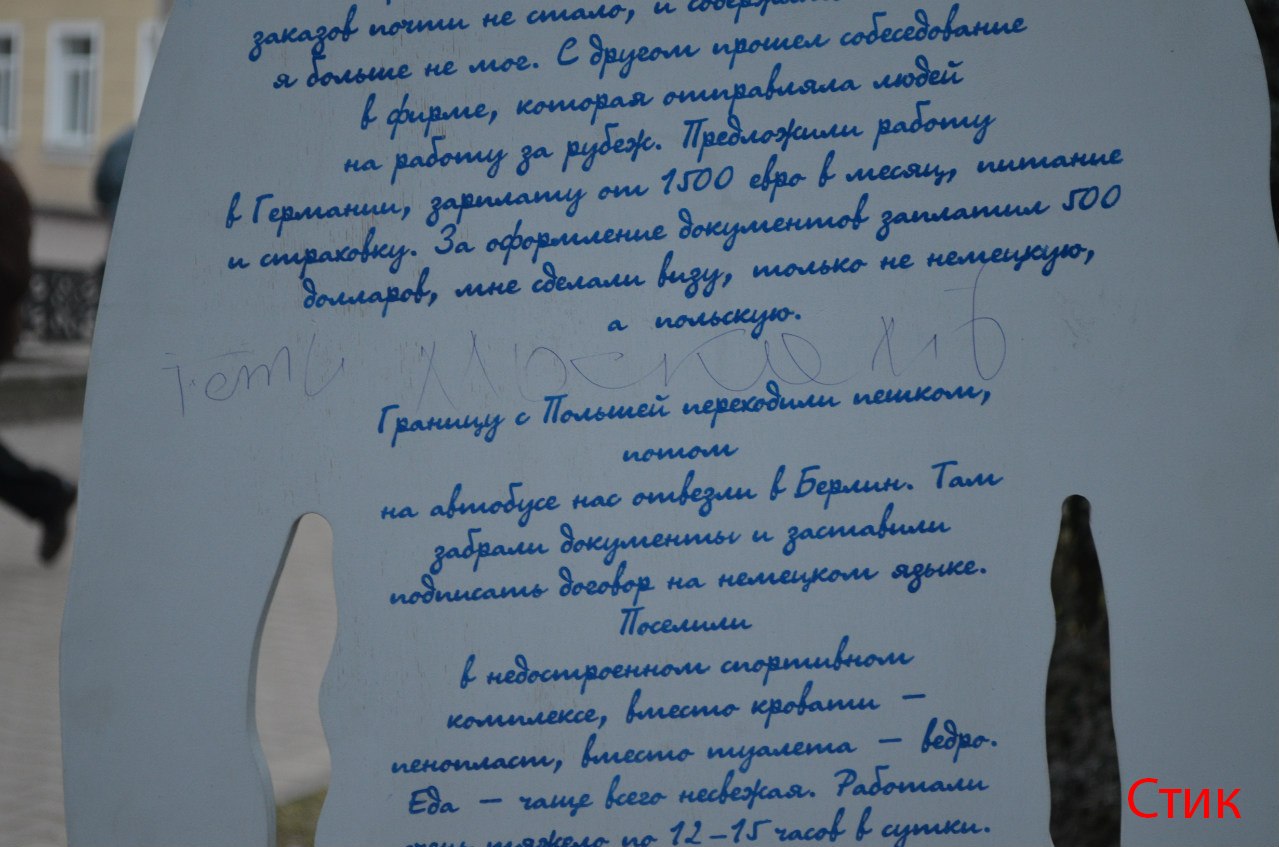 заказов почти не стало, и
я больше не мог. С другом прошел собеседование
в фирме, которая отправляла людей
на работу за рубеж. Предложили работу
в Германии, зарплату от 1500 евро в месяц, питание
и страховку. За оформление документов заплатил 500
долларов, мне сделали визу, только не немецкую,
а польскую.
Границу с Польшей переходили пешком,
потом
на автобусе нас отвезли в Берлин. Там
забрали документы и заставили
подписать договор на немецком языке.
Поселили
в недостроенном спортивном
комплексе, вместо кровати —
пенопласт, вместо туалета — ведро.
Еда — чаще всего несвежая. Работали
тяжело по 12–15 часов в сутки.
Стик